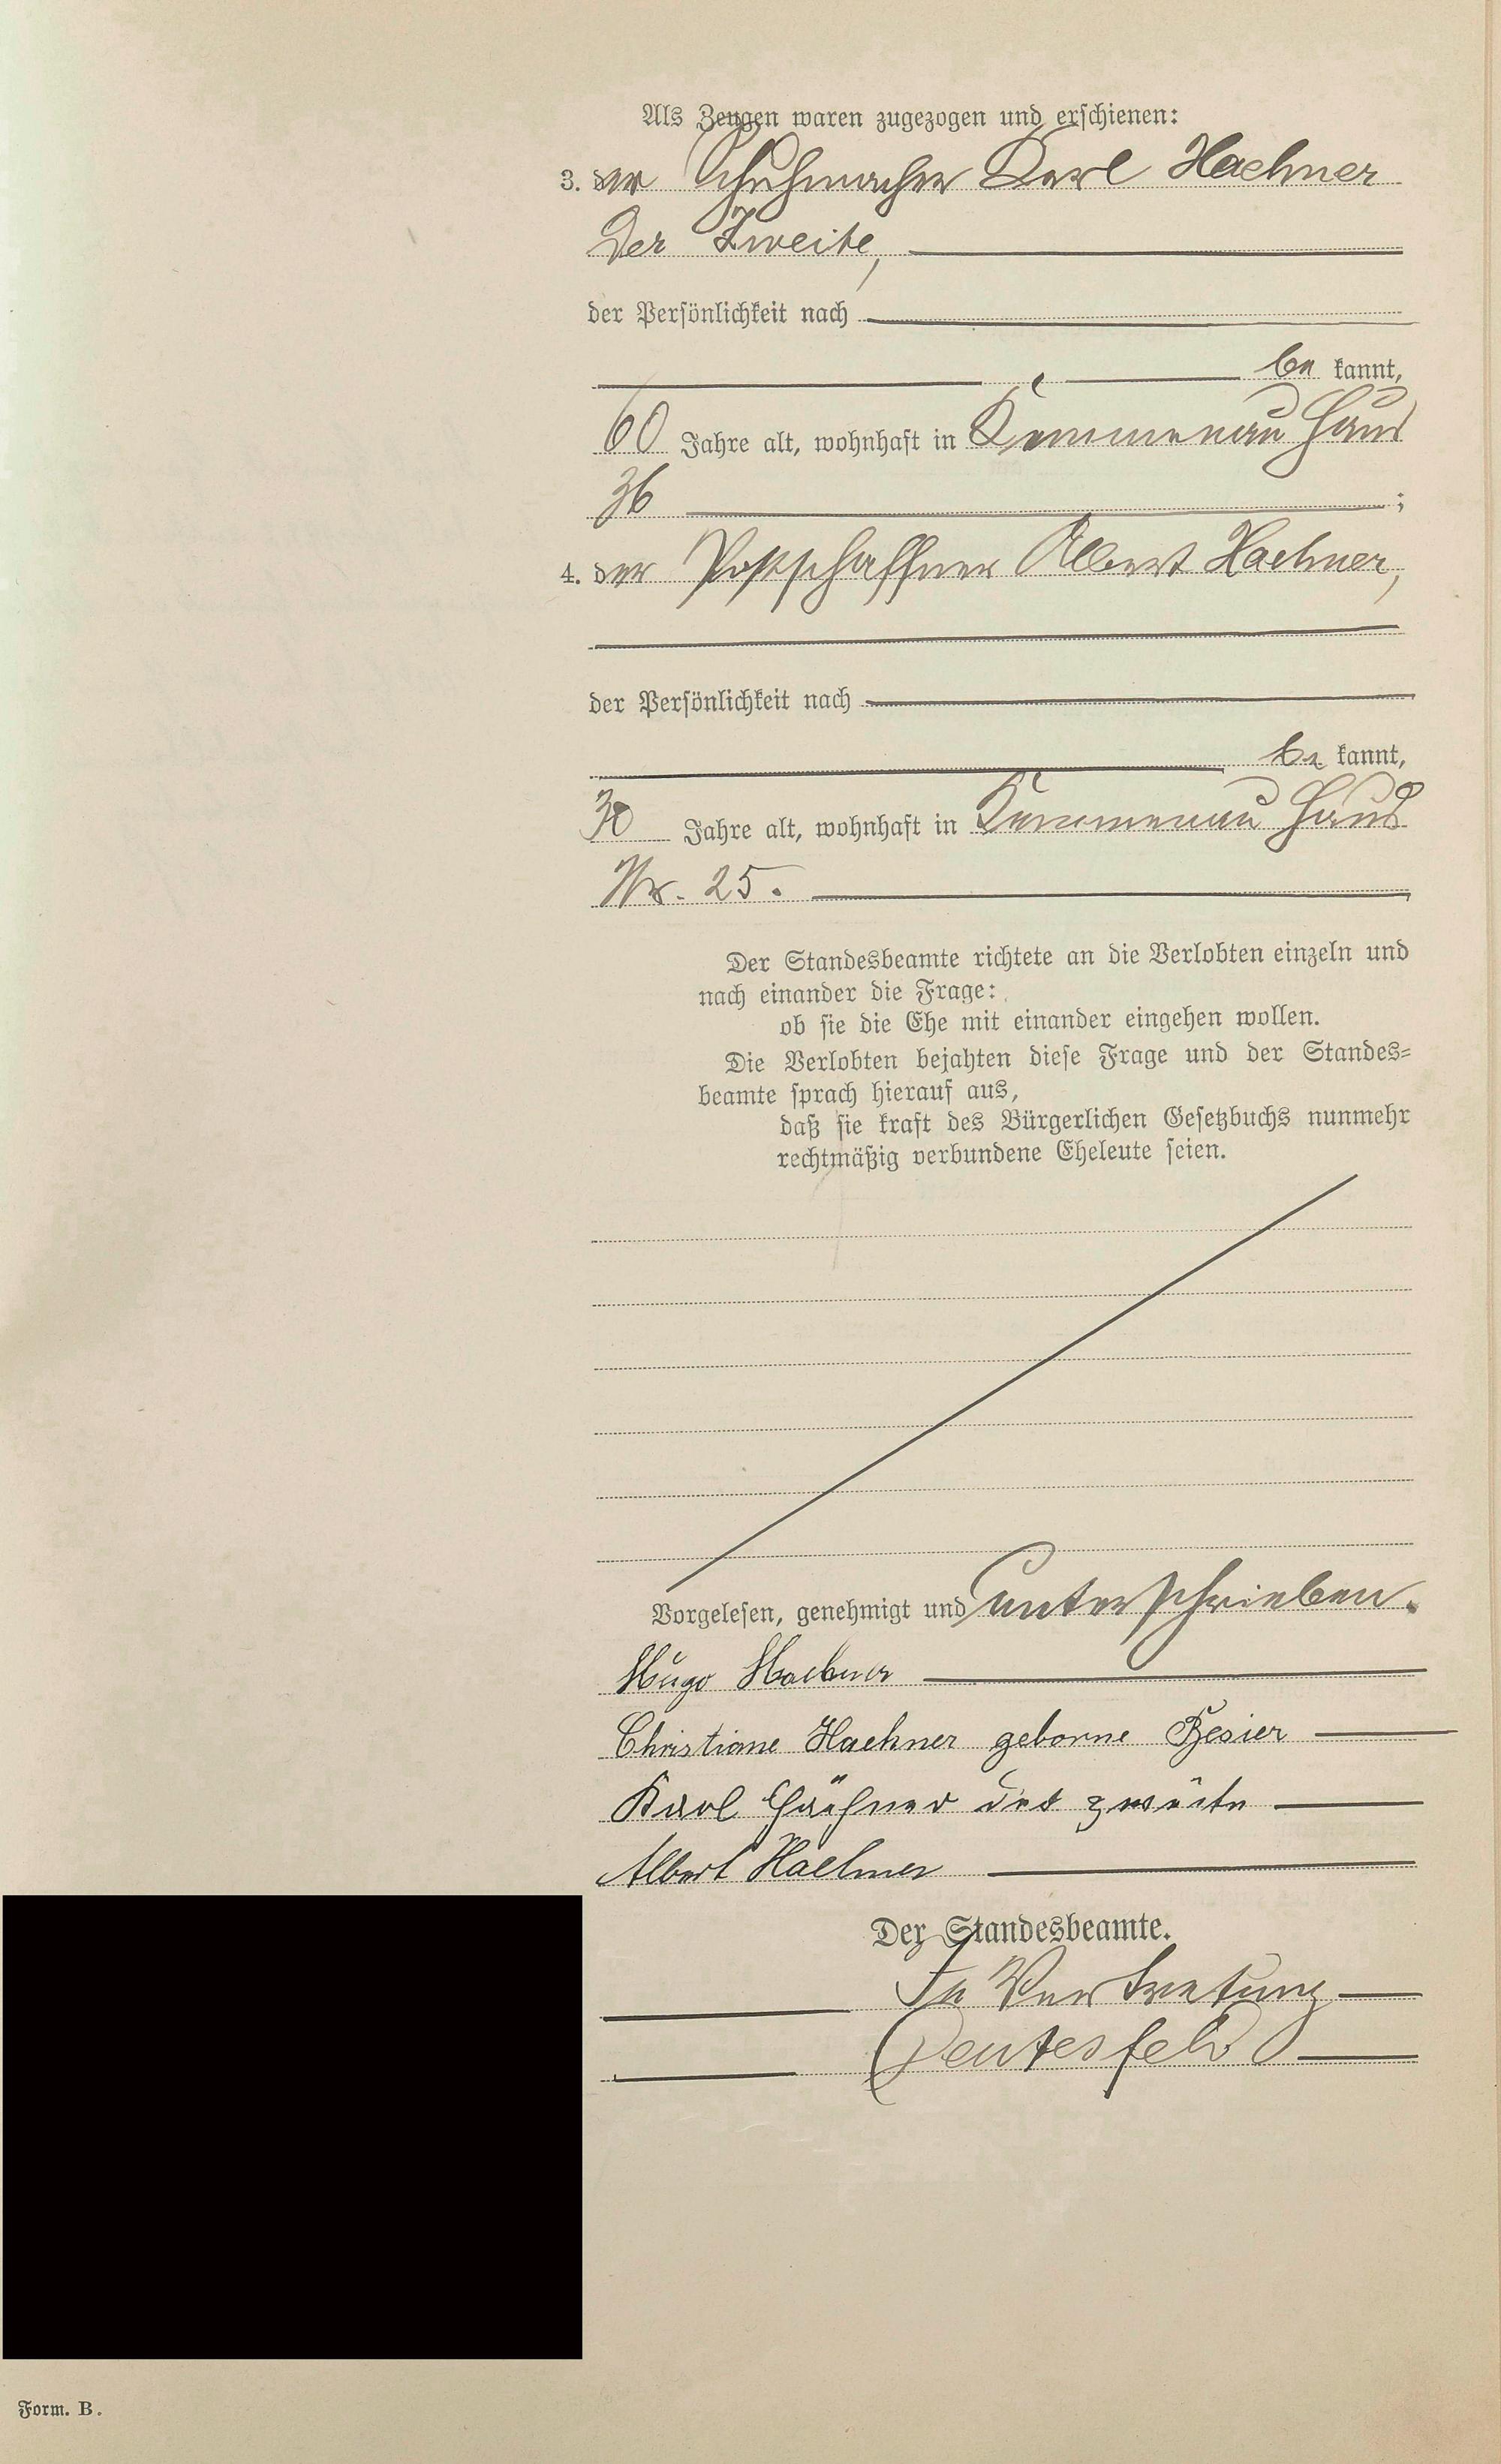 Als Zeugen waren zugezogen und erschienen:
3. der Schuhmacher Karl Haehner
Der Zweite,
der Persönlichkeit nach
be kannt,
60 Jahre alt, wohnhaft in Kemmenau Haus
36 ;
4. der Postschaffner Albert Haehner,
der Persönlichkeit nach
be kannt,
30 Jahre alt, wohnhaft in Kemmenau Haus
Nr. 25.
Der Standesbeamte richtete an die Verlobten einzeln und
nach einander die Frage:
ob sie die Ehe mit einander eingehen wollen.
Die Verlobten bejahten diese Frage und der Standes=
beamte sprach hierauf aus,
daß sie kraft des Bürgerlichen Gesetzbuchs nunmehr
rechtmäßig verbundene Eheleute seien.
Vorgelesen, genehmigt und unterschrieben.
Hugo Haehner
Christiane Haehner geborne Besier
Karl Hähner der zweite
Albert Haehner
Der Standesbeamte.
In Vertretung
Deutesfeld
Form. B.